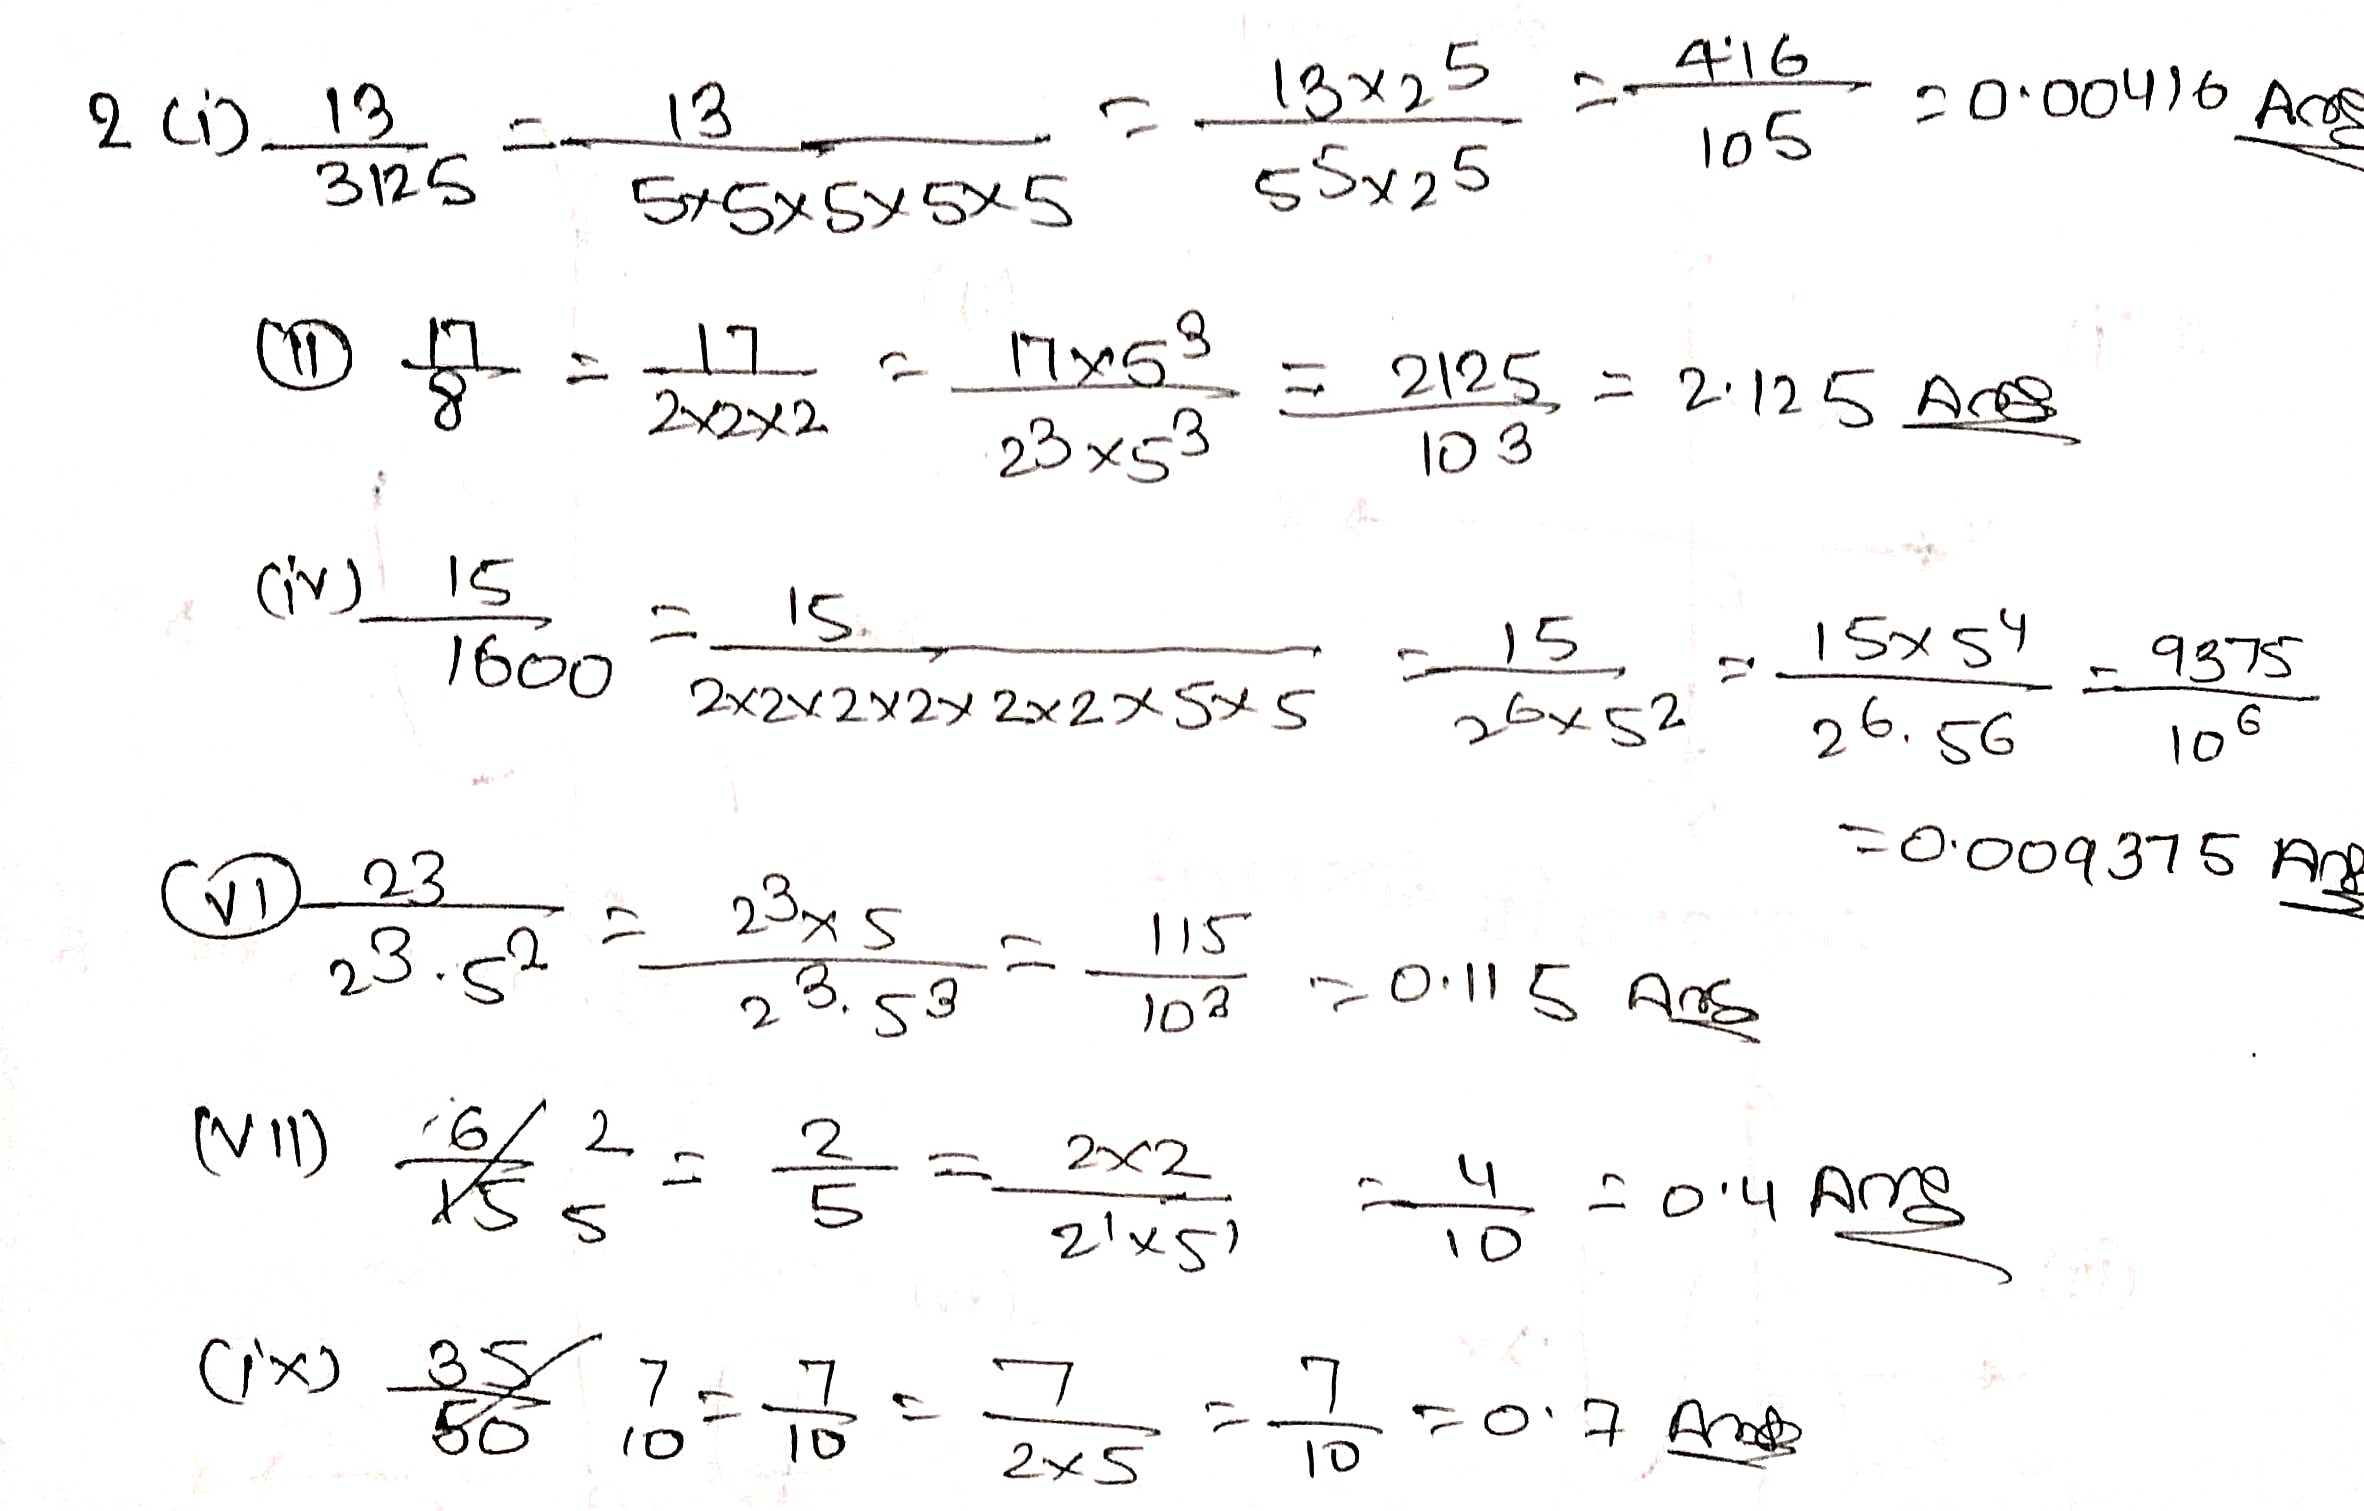 2 (i) 13/3125 = 13/(5×5×5×5×5) = (13×2^5)/(5^5×2^5) = 416/10^5 = 0.00416 Ans
(ii) 17/8 = 17/(2×2×2) = (17×5^3)/(2^3×5^3) = 2125/10^3 = 2.125 Ans
(iv) 15/1600 = 15/(2×2×2×2×2×2×5×5) = 15/(2^6×5^2) = (15×5^4)/(2^6.5^6) = 9375/10^6
=0.009375 Ans
(vi) 23/(2^3.5^2) = (23×5)/(2^3.5^3) = 115/10^3 = 0.115 Ans
(VII) 6/15 2/5 = 2/5 = (2×2)/(2^1×5^1) = 4/10 = 0.4 Ans
(ix) 35/50 7/10 = 7/10 = 7/(2×5) = 7/10 = 0.7 Ans